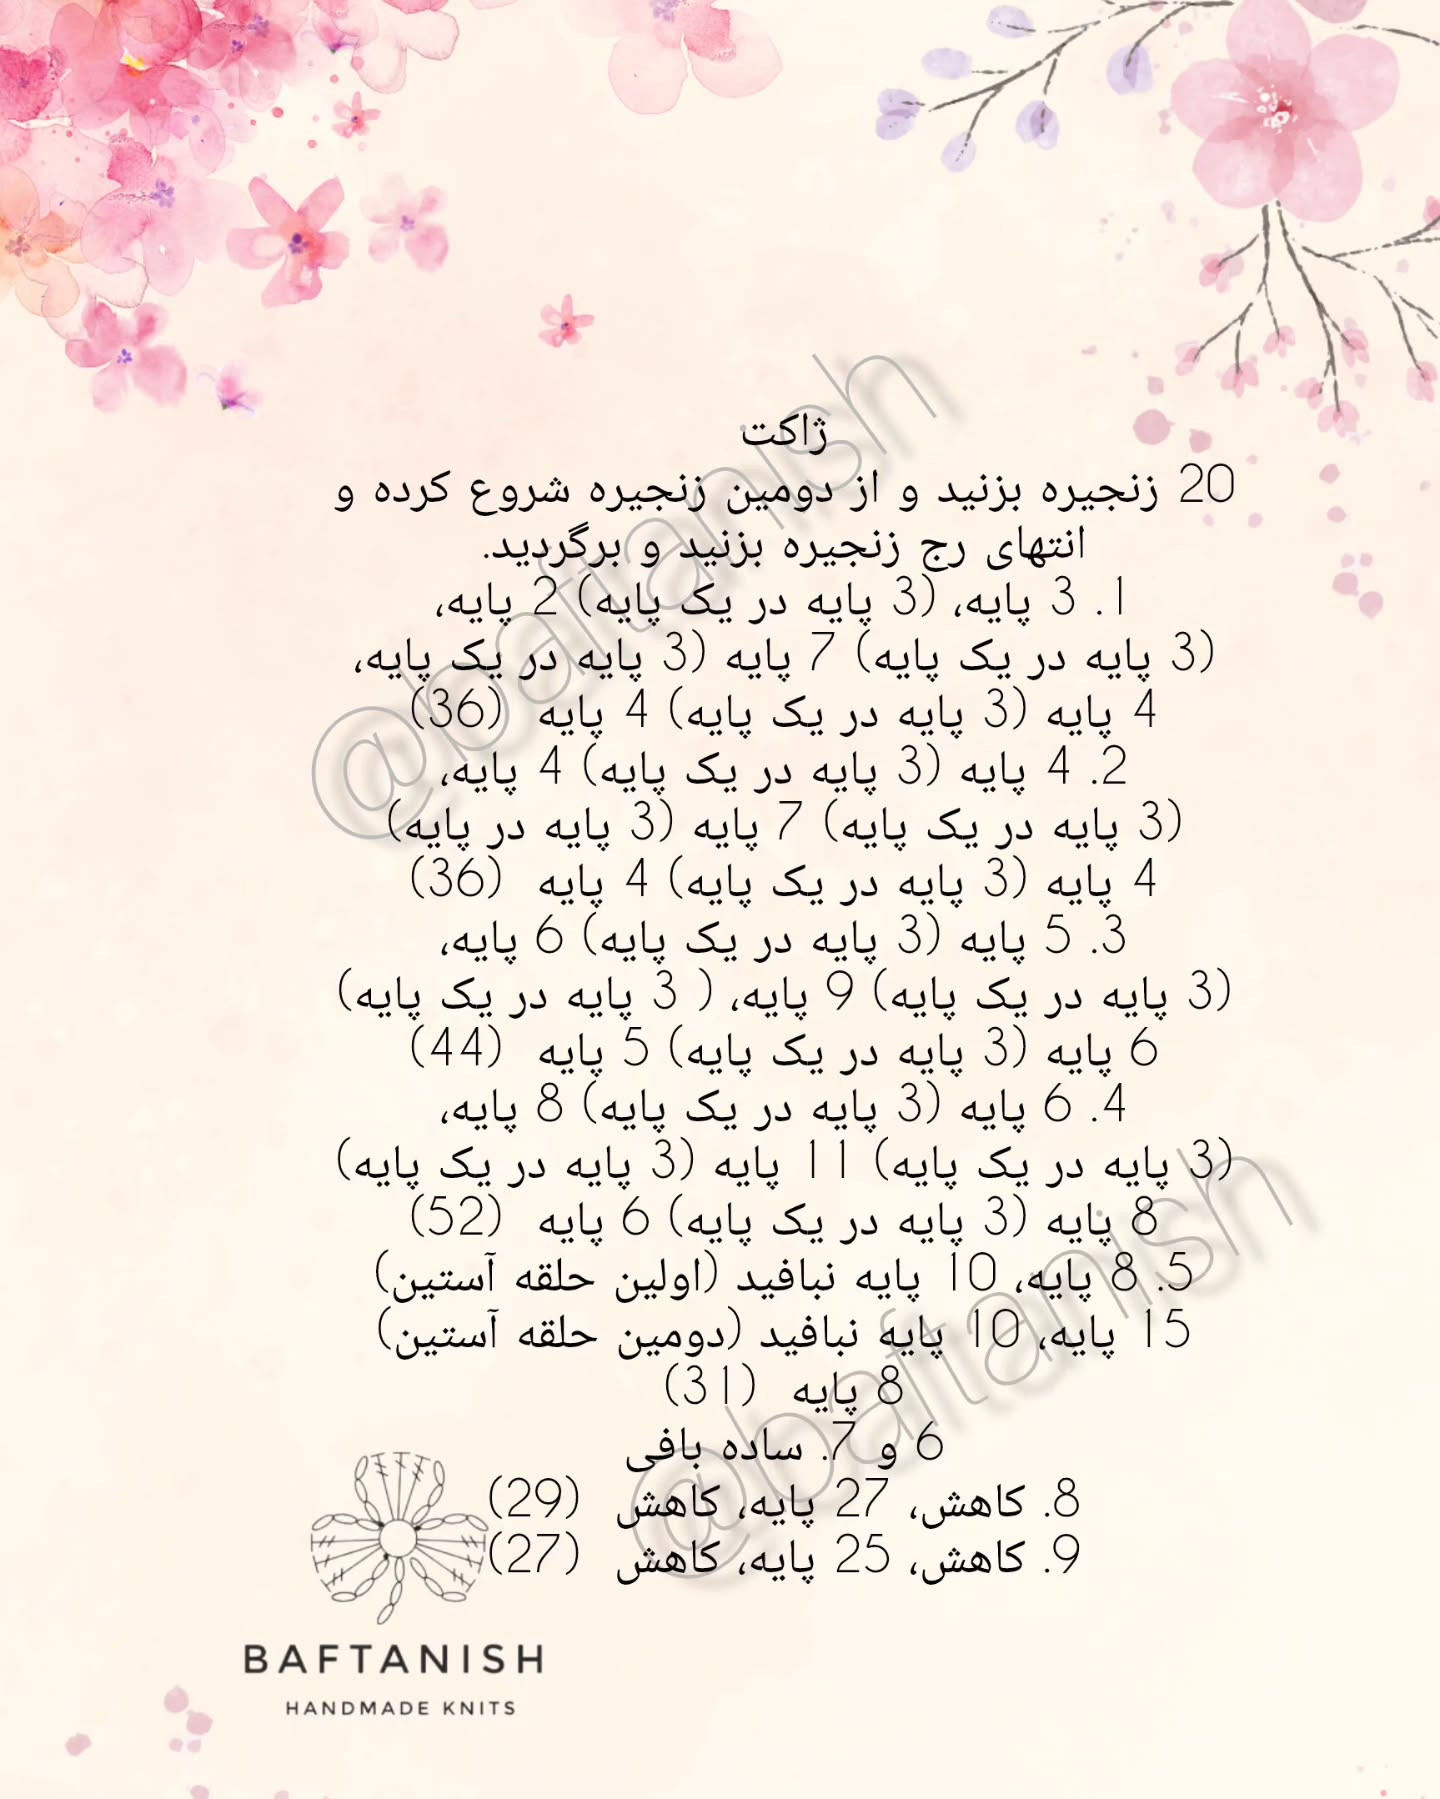 ژاکت
20 زنجیره بزنید و از دومین زنجیره شروع کرده و
انتهای رج زنجیره بزنید و برگردید.
1. 3 پایه، (3 پایه در یک پایه) 2 پایه،
(3 پایه در یک پایه) 7 پایه (3 پایه در یک پایه،
4 پایه (3 پایه در یک پایه) 4 پایه (36)
2. 4 پایه (3 پایه در یک پایه) 4 پایه،
(3 پایه در یک پایه) 7 پایه (3 پایه در پایه)
4 پایه (3 پایه در یک پایه) 4 پایه (36)
3. 5 پایه (3 پایه در یک پایه) 6 پایه،
(3 پایه در یک پایه) 9 پایه، ( 3 پایه در یک پایه)
6 پایه (3 پایه در یک پایه) 5 پایه (44)
4. 6 پایه (3 پایه در یک پایه) 8 پایه،
(3 پایه در یک پایه) 11 پایه (3 پایه در یک پایه)
8 پایه (3 پایه در یک پایه) 6 پایه (52)
5. 8 پایه، 10 پایه نبافید (اولین حلقه آستین)
15 پایه، 10 پایه نبافید (دومین حلقه آستین)
8 پایه (31)
6 و 7. ساده بافی
8. کاهش، 27 پایه، کاهش (29)
9. کاهش، 25 پایه، کاهش (27)
@baftanish
@baftanish
BAFTANISH
HANDMADE KNITS